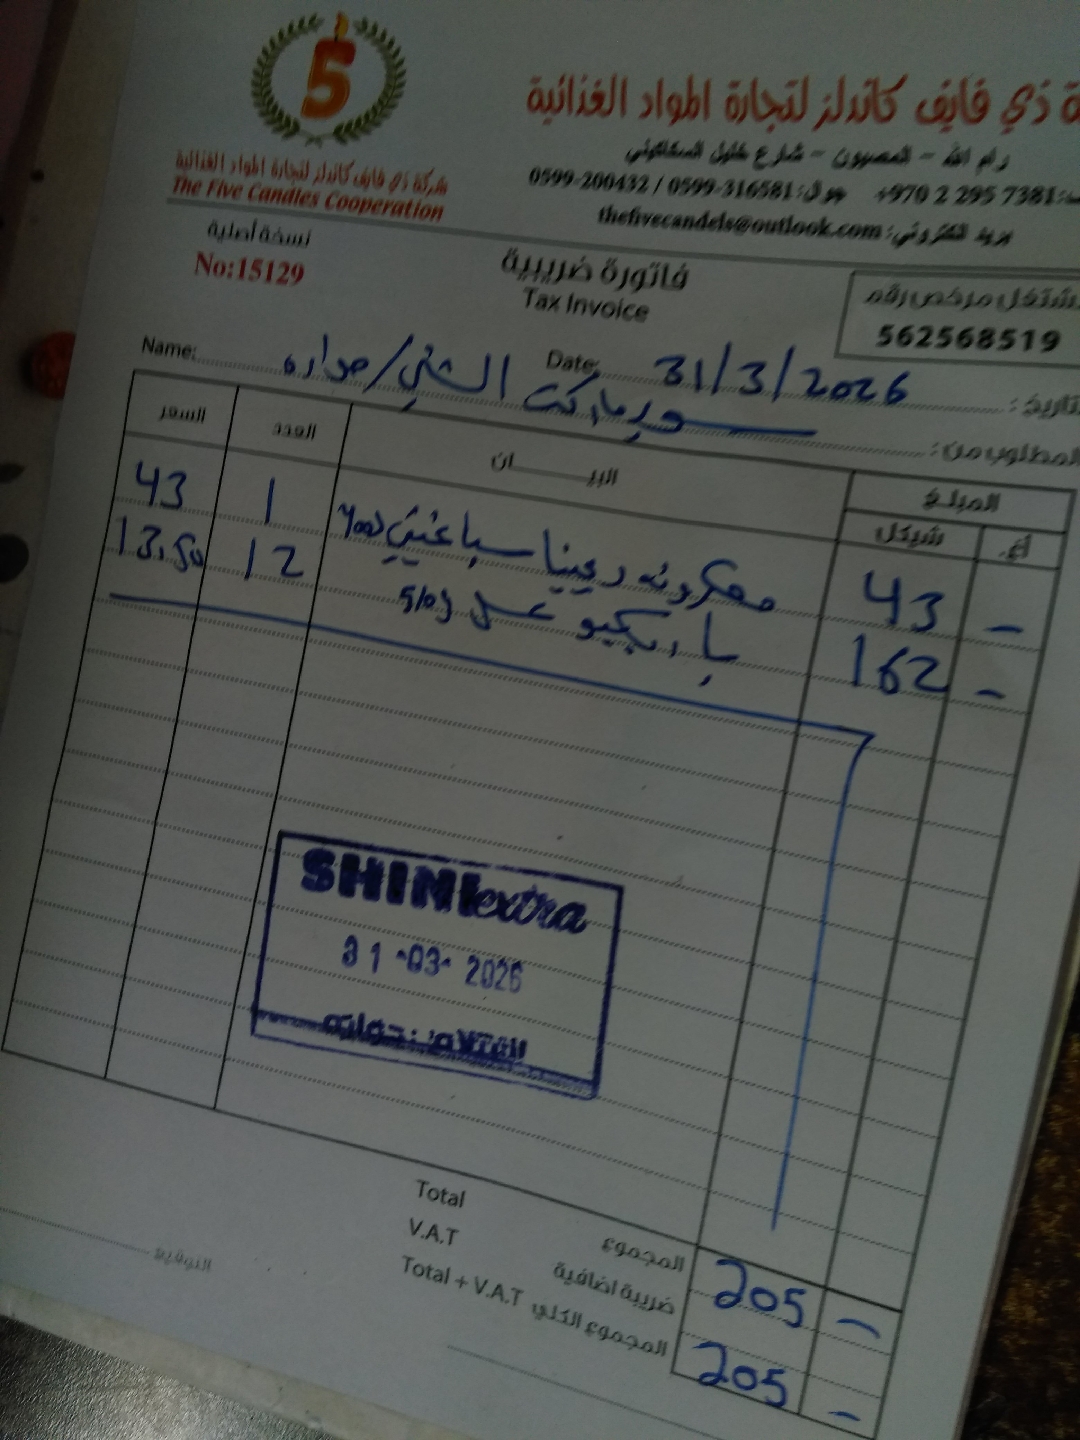 5
شركة ذي فايف كاندلز لتجارة المواد الغذائية
The Five Candles Cooperation
ة ذي فايف كاندلز لتجارة المواد الغذائية
رام الله - المصيون - شارع خليل السكاكيني
+970 2 295 7381 جوال: 0599-316581 / 0599-200432
بريد الكتروني: thefivecandels@outlook.com
نسخة أصلية
No:15129
فاتورة ضريبية
Tax Invoice
مشتغل مرخص رقم
562568519
Name:
Date: 31/3/2026 التاريخ:
المطلوب من: سوبرماركت الشني/
السعر العدد البيــــان المبلغ
شيكل أغ.
43 1 معكرونه ريجينا سباغيتي 400 43 -
13.50 12 باربكيو عسل 510 162 -
SHINI extra
31-03-2026
Total المجموع 205 -
V.A.T ضريبة اضافية
Total + V.A.T المجموع الكلي 205 -